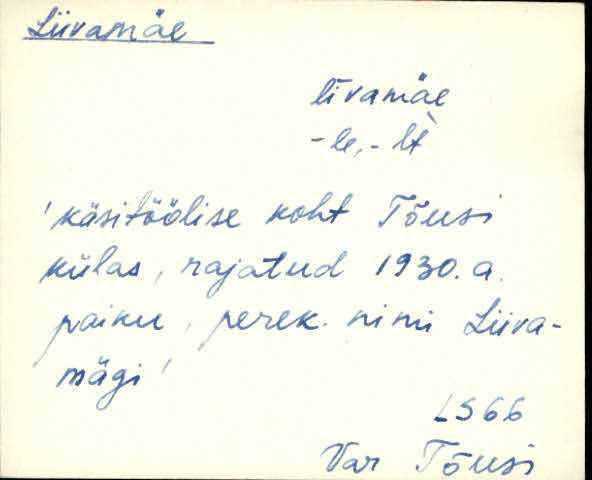 Liivamäe
līvamäe
-le, -lt̀
'käsitöölise koht Tõusi
külas, rajatud 1930. a.
paiku, perek. nimi Liiva-
mägi'
LS 66
Var Tõusi